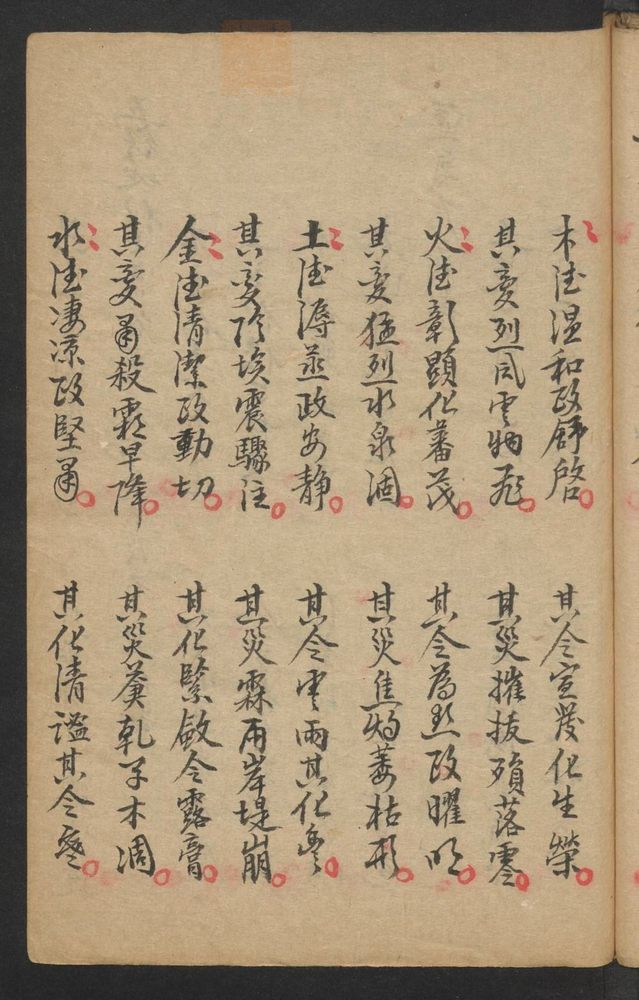 木德温和政舒啓　其令宣發化生榮
其變烈風雲物飛　其災摧拔殞落零
火德彰顯化蕃茂　其令為熱政曜明
其變猛烈水泉涸　其災焦灼萎枯形
土德溽蒸政安静　其令雲雨其化豊
其變陰埃震驟注　其災霖雨岸堤崩
金德清潔政動切　其化緊斂令露膏
其變肅殺霜早降　其災蒼乾草木凋
水德凄凉政堅肅　其化清謐其令寒